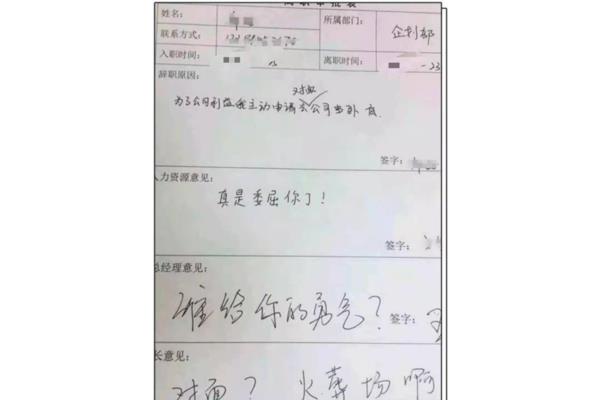 离职审批表
姓名：
所属部门： 企划部
联系方式：
入职时间：
离职时间： -23
辞职原因：
对面
为了公司利益我主动申请去公司当卧底
签字：
人力资源意见：
真是委屈你了！
签字：
总经理意见：
谁给你的勇气？
签字：
长意见：
对面？ 火葬场啊